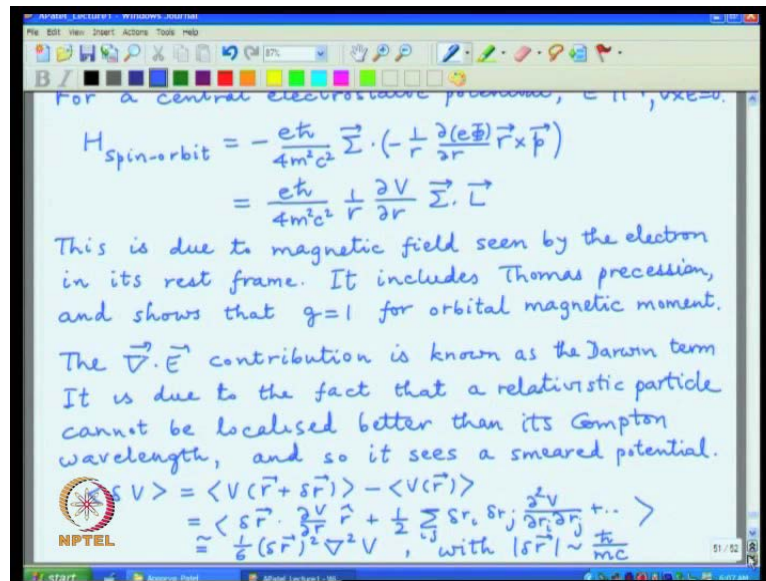 APatel_Lecture1 - Windows Journal
File Edit View Insert Actions Tools Help
87%
B I
For a central electrostatic potential, E ∥ r, ∇×E=0.
H_spin-orbit = - eħ/4m²c² Σ⃗ · (- 1/r ∂(eΦ)/∂r r⃗ × p⃗)
= eħ/4m²c² 1/r ∂V/∂r Σ⃗ · L⃗
This is due to magnetic field seen by the electron
in its rest frame. It includes Thomas precession,
and shows that g=1 for orbital magnetic moment.
The ∇⃗·E⃗ contribution is known as the Darwin term
It is due to the fact that a relativistic particle
cannot be localised better than its Compton
wavelength, and so it sees a smeared potential.
<δV> = <V(r⃗+δr⃗)> - <V(r⃗)>
= <δr⃗ · ∂V/∂r r̂ + 1/2 Σ_ij δr_i δr_j ∂²V/∂r_i∂r_j + .. >
≅ 1/6 (δr⃗)² ∇²V , with |δr⃗| ~ ħ/mc
NPTEL
51/52
start
Apoorva Patel
APatel_Lecture1 - Wi...
6:07 AM